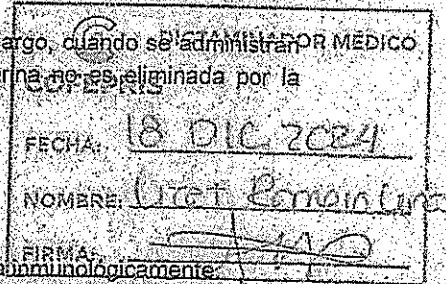 argo, cuando se administran
DICTAMINADOR MÉDICO
urina no es eliminada por la
COFEPRIS
FECHA: 18 DIC 2024
NOMBRE:
FIRMA:
onmunológicamente: